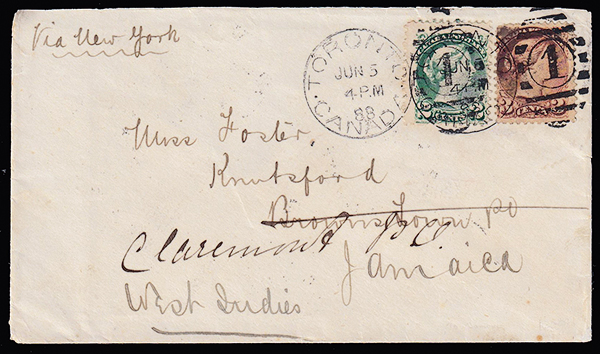 Via New York
TORONTO
JUN 5
4 PM
88
CANADA
1
JUN 5
4 PM
88
1
Miss Foster,
Knutsford
Brownstown PO
Claremont
Jamaica
West Indies